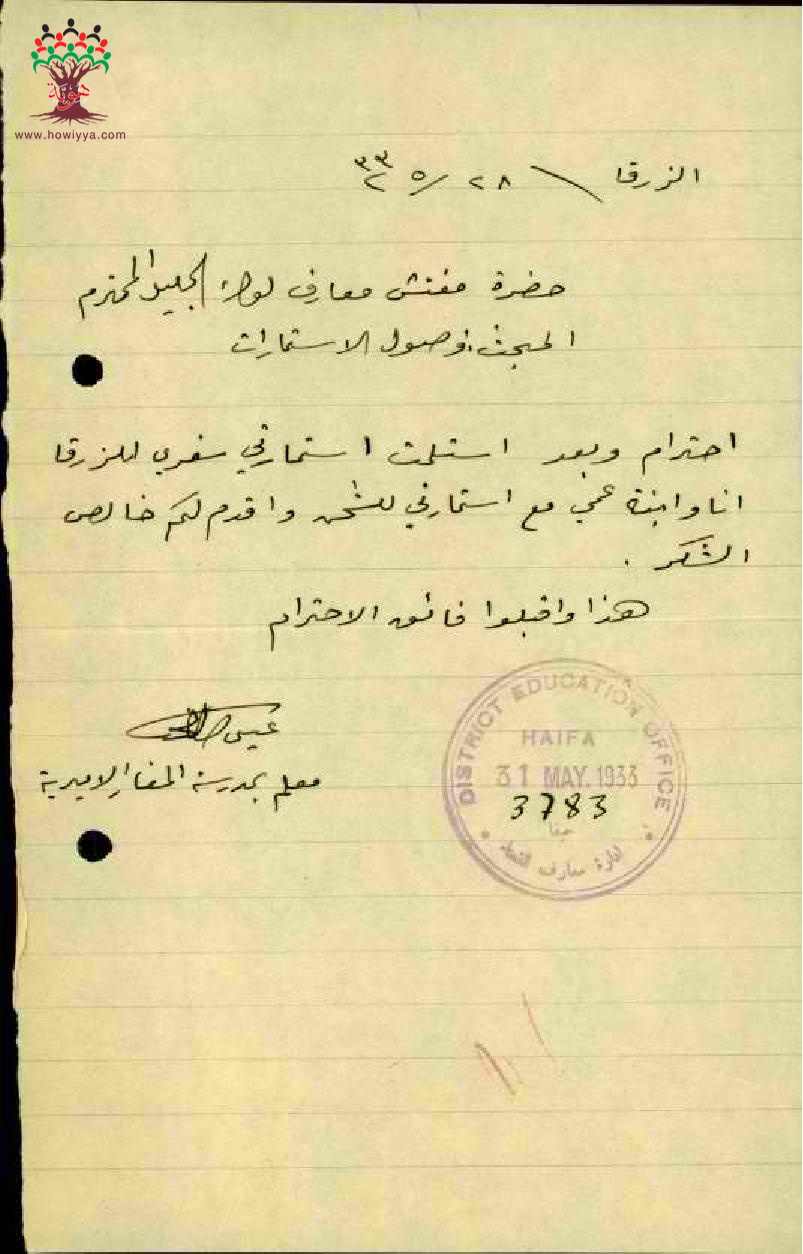 هوية
www.howiyya.com
الزرقا ٢٨/٥/٣٣
حضرة مفتش معارف لواء الجليل المحترم
المبحث: وصول الاستمارات
احترام وبعد استلمت استمارتي سفري للزرقا
انا وابنة عمي مع استمارتي للشحن واقدم لكم خالص
الشكر.
هذا واقبلوا فائق الاحترام
عيسى
معلم بمدرسة المغار الاميرية
DISTRICT EDUCATION OFFICE
HAIFA
31 MAY.1933
3783
حيفا
ادارة معارف القضاء